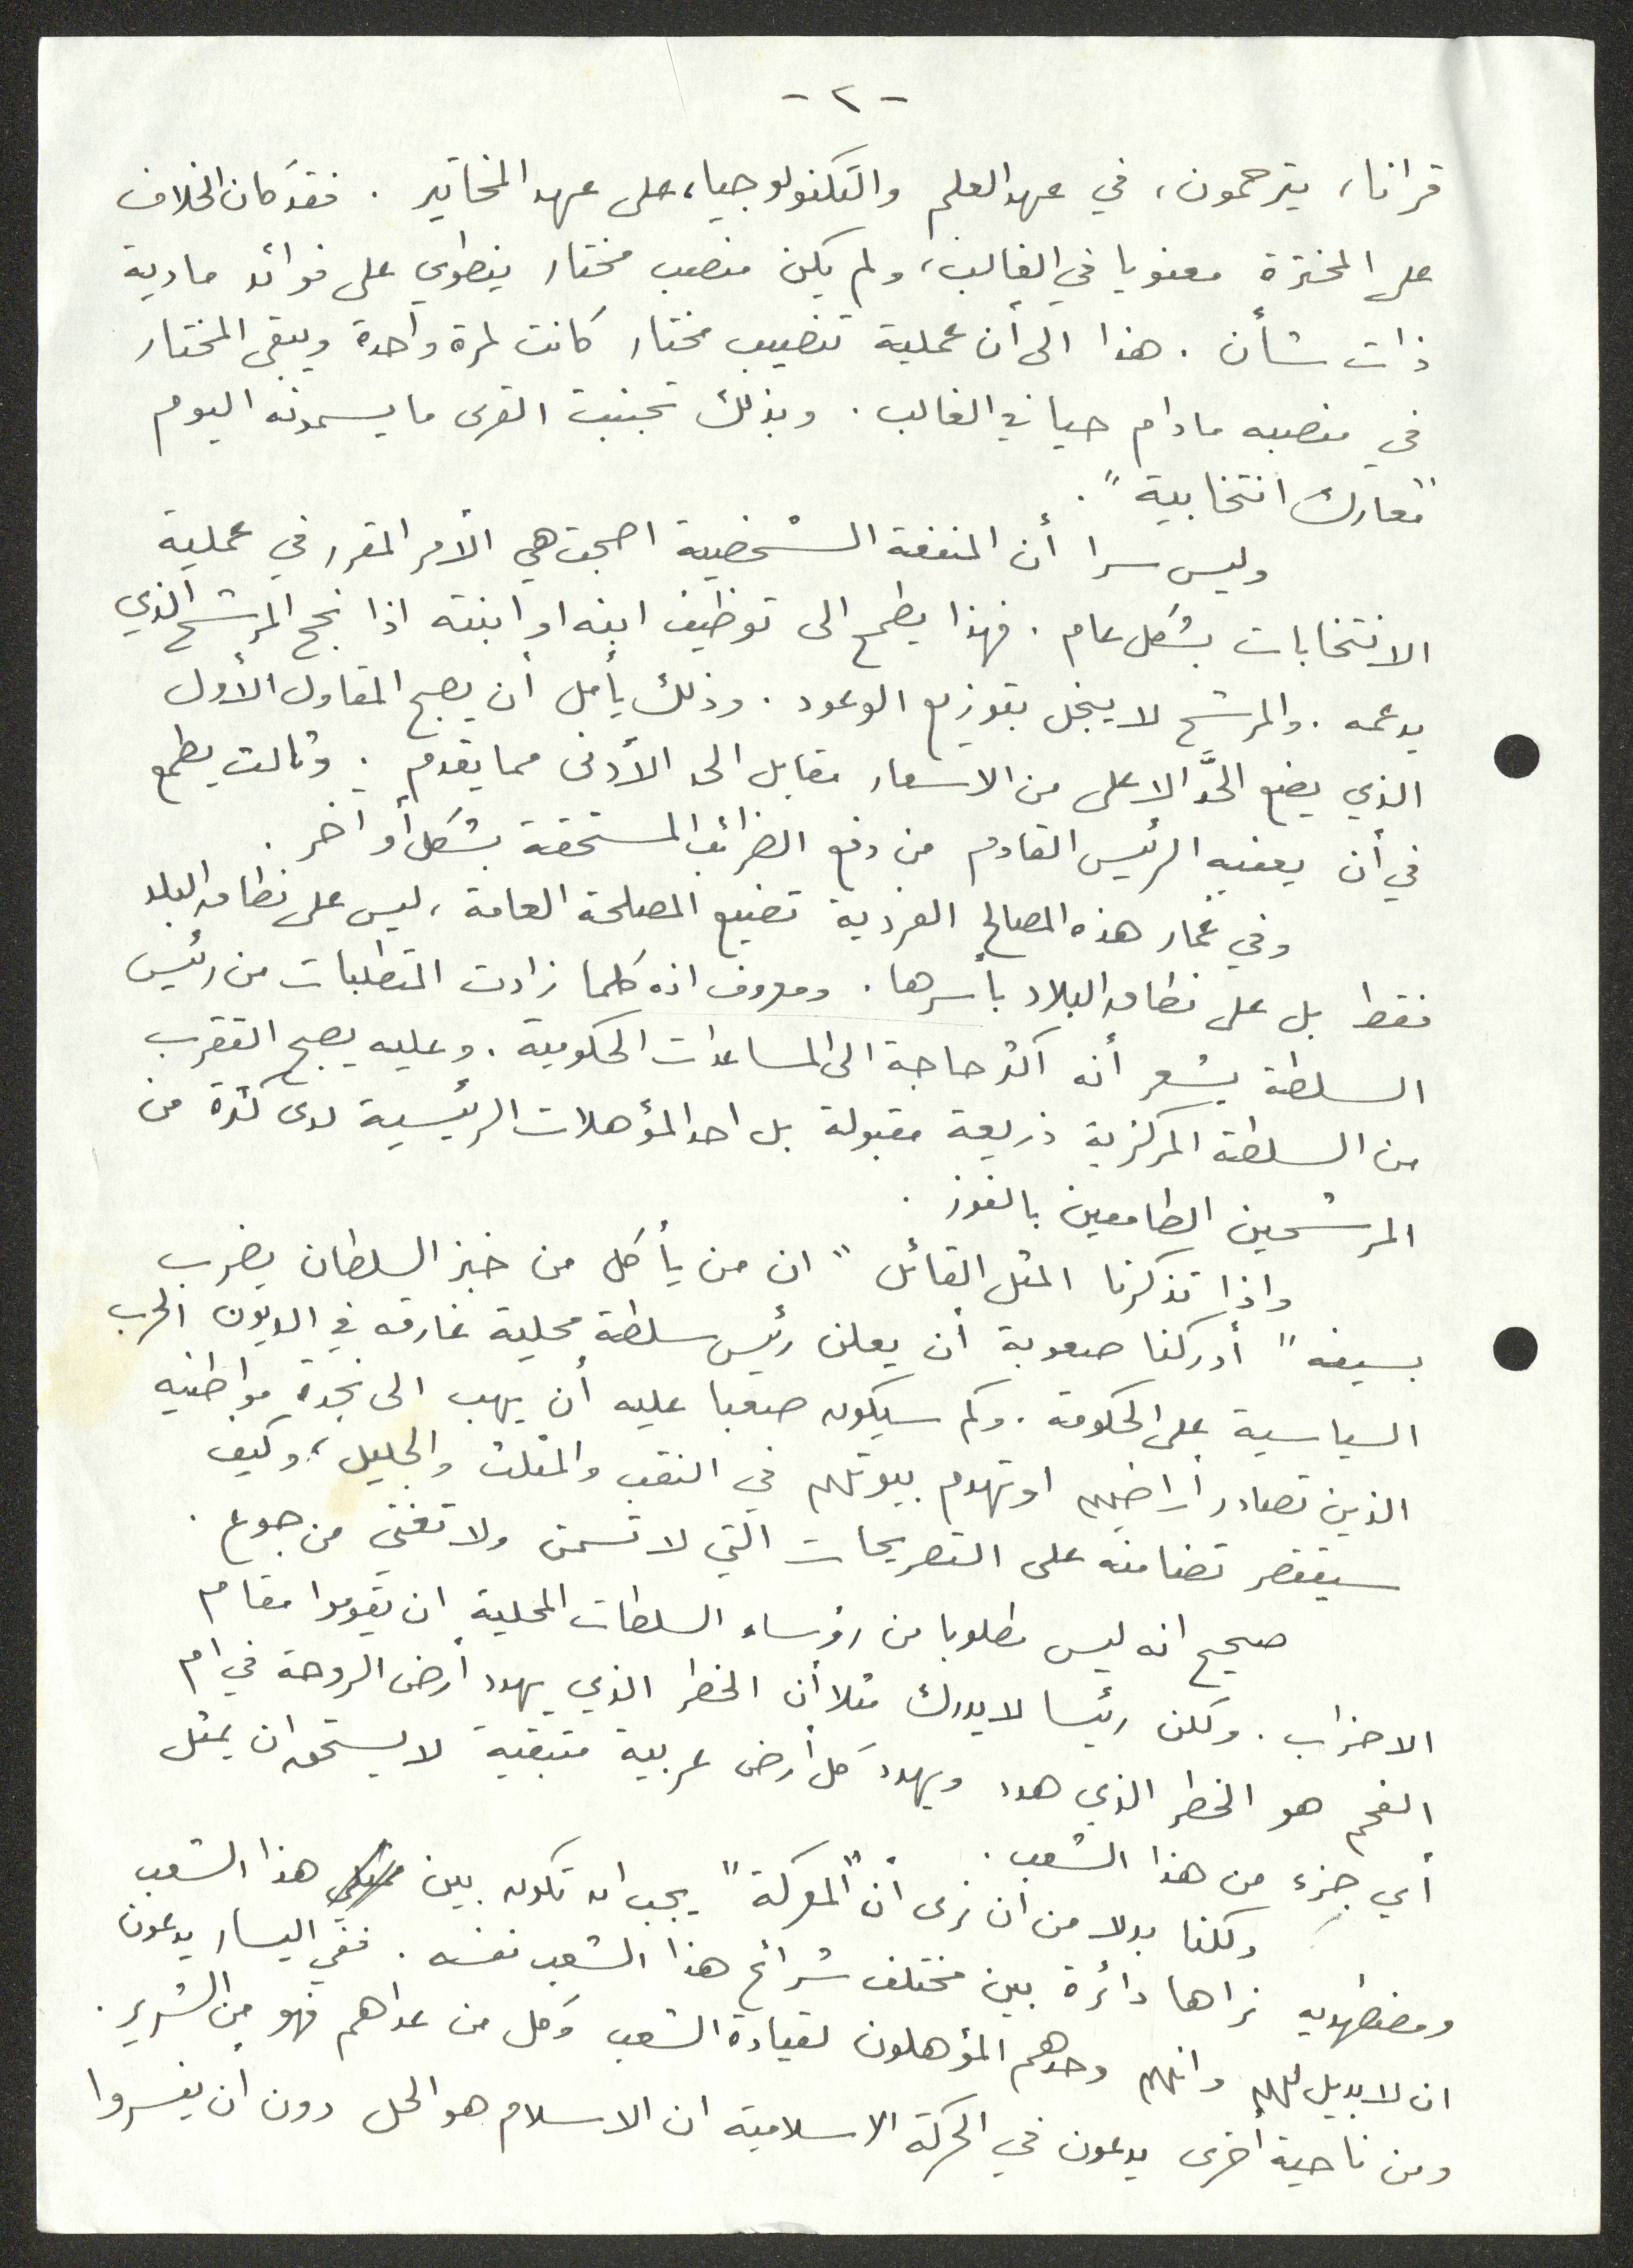 - ٢ -
قرانا، يترحمون، في عهد العلم والتكنولوجيا، على عهد المخاتير. فقد كان الخلاف
على المخترة معنويا في الغالب، ولم يكن منصب مختار ينطوي على فوائد مادية
ذات شأن. هذا الى أن عملية تنصيب مختار كانت لمرة واحدة ويبقى المختار
في منصبه مادام حيا في الغالب. وبذلك تجنبت القرى ما يسمونه اليوم
"معارك انتخابية".
وليس سرا أن المنفعة الشخصية اصبحت هي الأمر المقرر في عملية
الانتخابات بشكل عام. فهذا يطمح الى توظيف ابنه او ابنته اذا نجح المرشح الذي
يدعمه. والمرشح لا يبخل بتوزيع الوعود. وذلك يأمل أن يصبح المقاول الأول
الذي يضع الحدَّ الاعلى من الاسعار مقابل الحد الأدنى مما يقدم. وثالث يطمع
في أن يعفيه الرئيس القادم من دفع الضرائب المستحقة بشكل أو اخر.
وفي غمار هذه المصالح الفردية تضيع المصلحة العامة، ليس على نطاق البلد
فقط بل على نطاق البلاد بأسرها. ومعروف انه كلما زادت المتطلبات من رئيس
السلطة يشعر أنه اكثر حاجة الى المساعدات الحكومية. وعليه يصبح التقرب
من السلطة المركزية ذريعة مقبولة بل احد المؤهلات الرئيسية لدى كثرة من
المرشحين الطامعين بالفوز.
واذا تذكرنا المثل القائل "ان من يأكل من خبز السلطان يضرب
بسيفه" أدركنا صعوبة أن يعلن رئيس سلطة محلية غارقه في الديون الحرب
السياسية على الحكومة. وكم سيكون صعبا عليه أن يهب الى نجدة مواطنيه
الذين تصادر أراضيهم او تهدم بيوتهم في النقب والمثلث والجليل، وكيف
سيقتصر تضامنه على التصريحات التي لا تسمن ولا تغني من جوع.
صحيح انه ليس مطلوبا من رؤساء السلطات المحلية ان يقوموا مقام
الاحزاب. ولكن رئيسا لا يدرك مثلا أن الخطر الذي يهدد أرض الروحة في ام
الفحم هو الخطر الذي هدد ويهدد كل أرض عربية متبقية لا يستحق ان يمثل
أي جزء من هذا الشعب.
ولكننا بدلا من ان نرى أن "المعركة" يجب ان تكون بين هذا الشعب
ومضطهديه نراها دائرة بين مختلف شرائح هذا الشعب نفسه. ففي اليسار يدعون
ان لا بديل لهم وانهم وحدهم المؤهلون لقيادة الشعب وكل من عداهم فهو من الشرير.
ومن ناحية أخرى يدعون في الحركة الاسلامية ان الاسلام هو الحل دون أن يفسروا